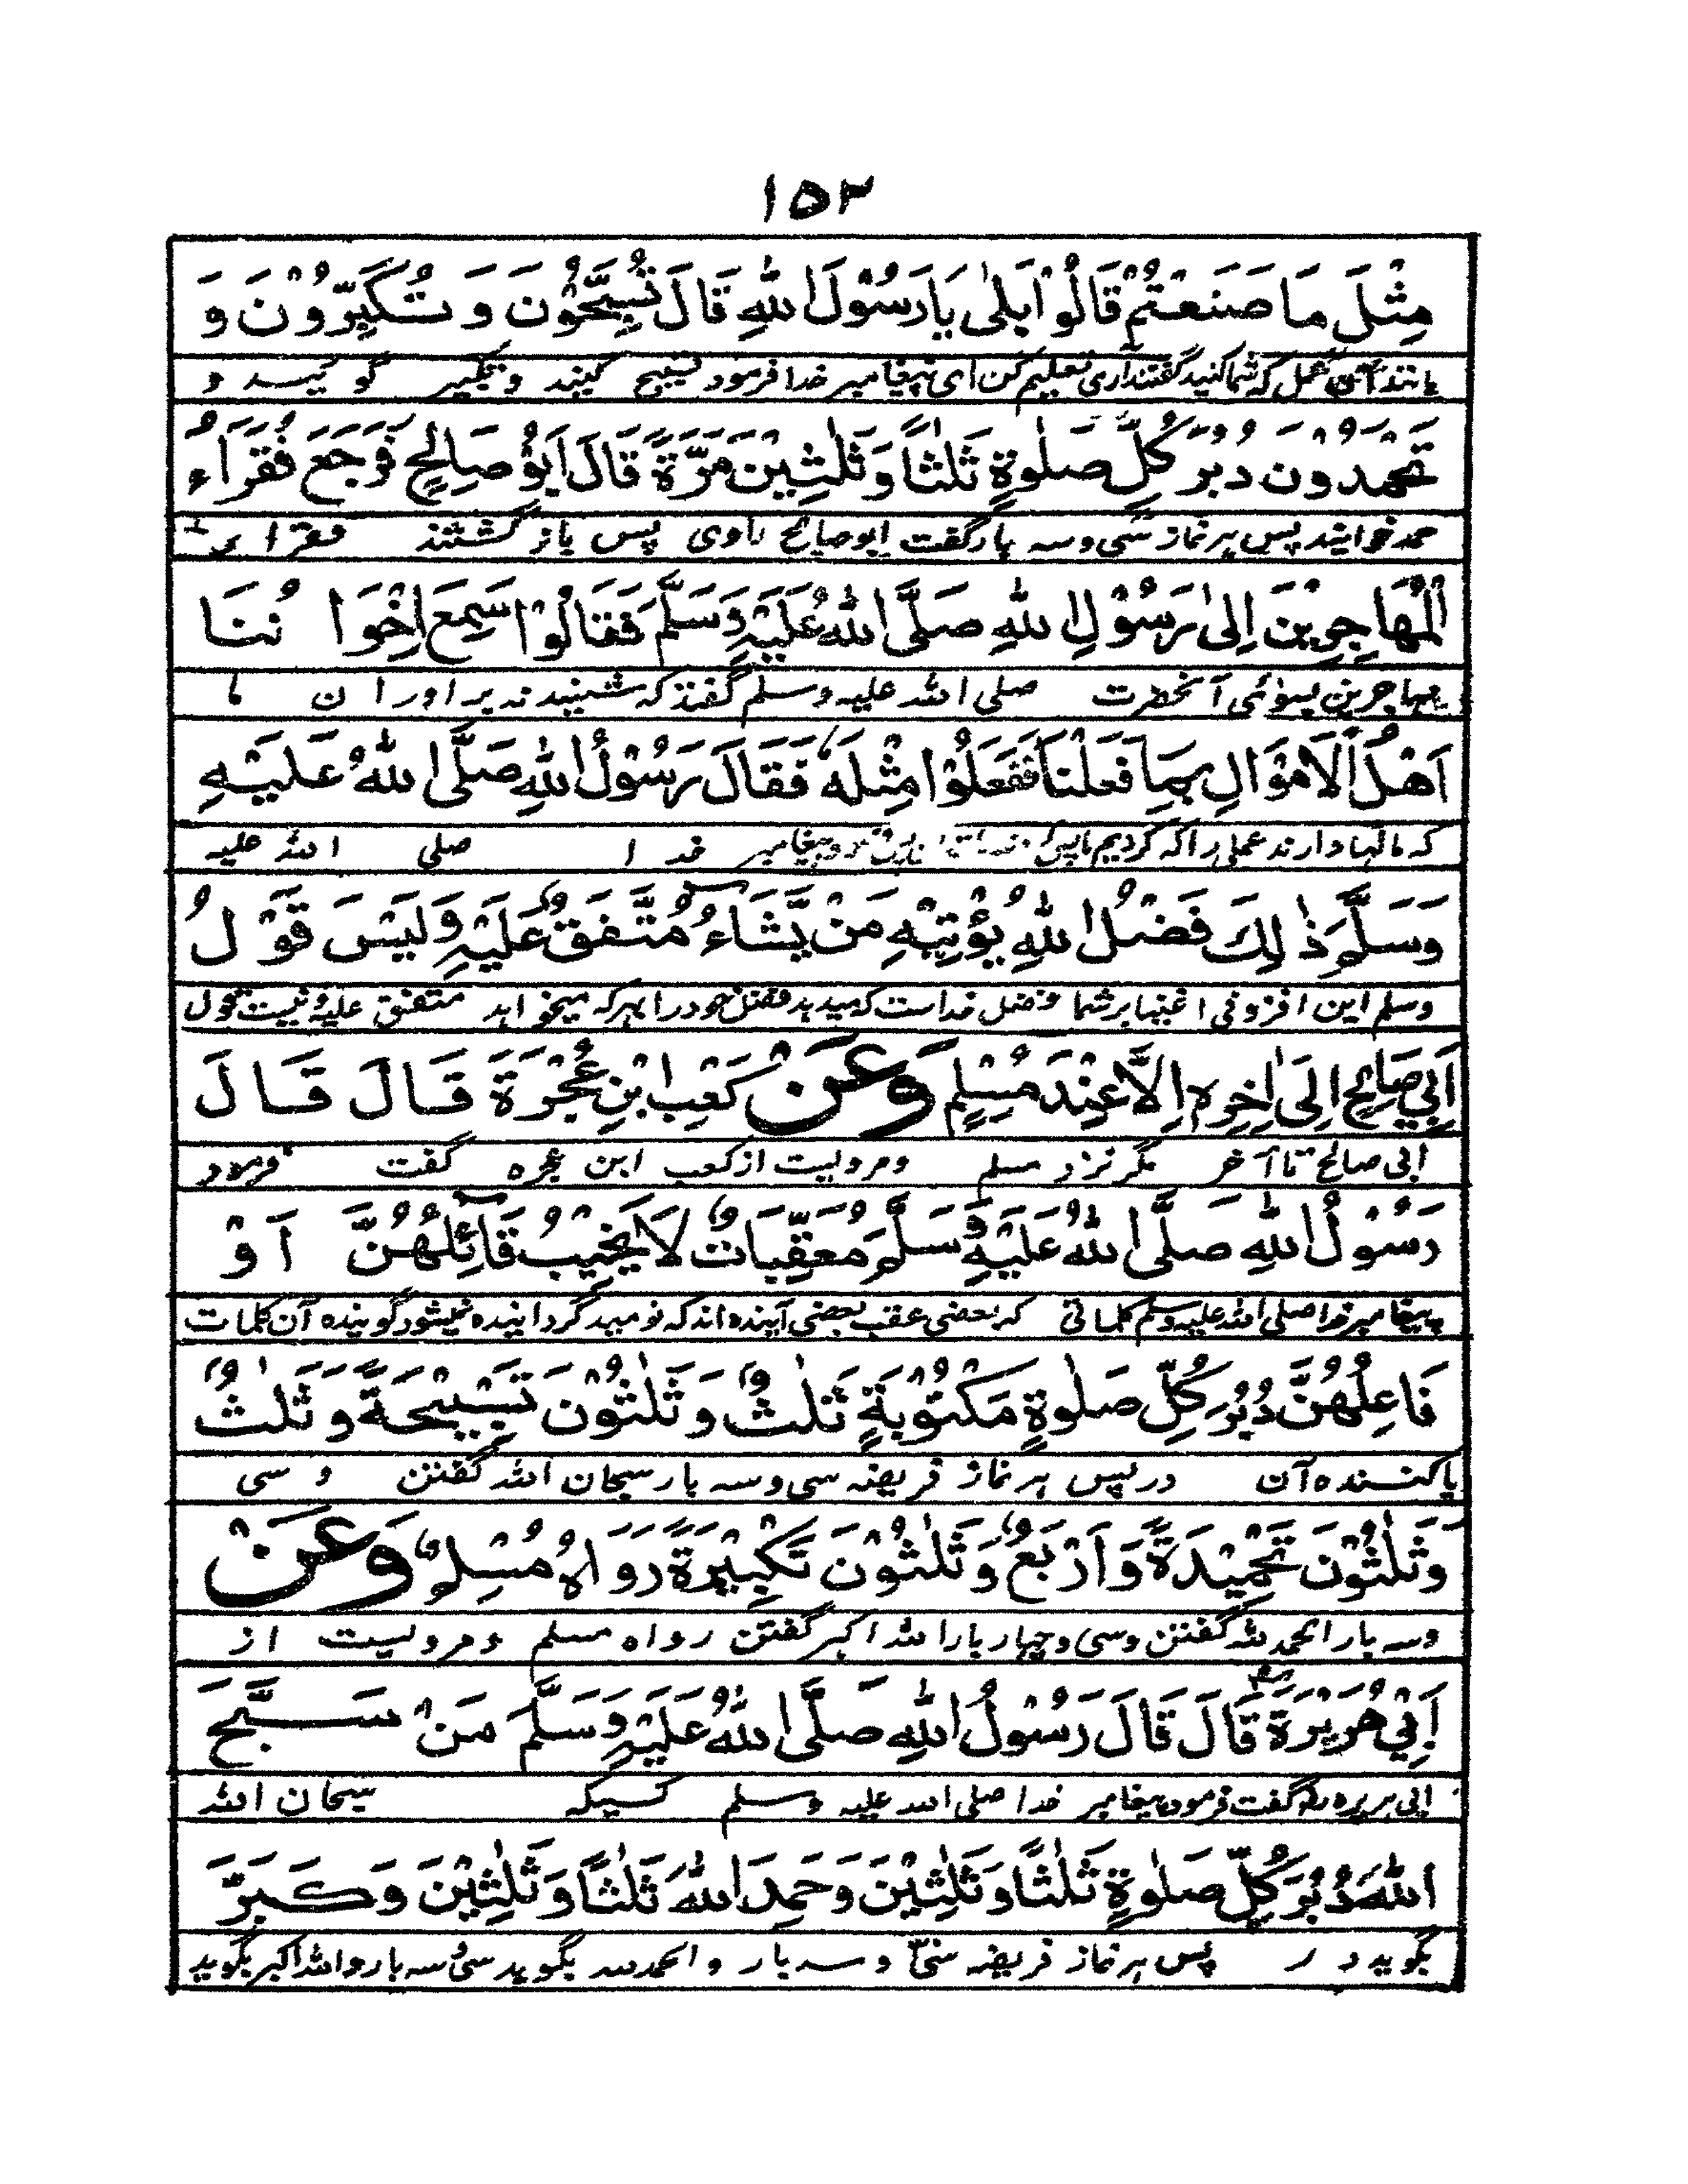 ١٥٢
مِثْلَ مَا صَنَعْتُمْ قَالُوْا بَلٰى يَا رَسُوْلَ اللهِ قَالَ تُسَبِّحُوْنَ وَ تُكَبِّرُوْنَ وَ
مانند آن عمل که شما کنید گفتند آری تعلیم کن ای پیغامبر خدا فرمود تسبیح کنید و تکبیر گوئید و
تَحْمَدُوْنَ دُبُرَ كُلِّ صَلٰوةٍ ثَلٰثًا وَّثَلٰثِيْنَ مَرَّةً قَالَ اَبُوْ صَالِحٍ فَرَجَعَ فُقَرَاءُ
حمد خوانید پس هر نماز سی و سه بار گفت ابو صالح راوی پس باز گشتند فقرای
الْمُهَاجِرِيْنَ اِلٰى رَسُوْلِ اللهِ صَلَّى اللهُ عَلَيْهِ وَسَلَّمَ فَقَالُوْا سَمِعَ اِخْوَانُنَا
مهاجرین بسوئی آنحضرت صلی الله علیه وسلم گفتند که شنیدند برادران ما
اَهْلُ الْاَمْوَالِ بِمَا فَعَلْنَا فَفَعَلُوْا مِثْلَهٗ فَقَالَ رَسُوْلُ اللهِ صَلَّى اللهُ عَلَيْهِ
که مالها دارند عملی را که کردیم ما پس پیغامبر خدا صلی الله علیه
وَسَلَّمَ ذٰلِكَ فَضْلُ اللهِ يُؤْتِيْهِ مَنْ يَّشَآءُ مُتَّفَقٌ عَلَيْهِ وَلَيْسَ قَوْلُ
وسلم این افزونی اغنیا بر شما فضل خداست که میدهد فضل خود را بهر که میخواهد متفق علیه و نیست قول
اَبِيْ صَالِحٍ اِلٰى اٰخِرِهٖ اِلَّا عِنْدَ مُسْلِمٍ وَعَنْ كَعْبِ ابْنِ عُجْرَةَ قَالَ قَالَ
ابی صالح تا آخر مگر نزد مسلم و مرویست از کعب ابن عجره گفت فرمود
رَسُوْلُ اللهِ صَلَّى اللهُ عَلَيْهِ وَسَلَّمَ مُعَقِّبَاتٌ لَا يَخِيْبُ قَآئِلُهُنَّ اَوْ
پیغامبر خدا صلی الله علیه وسلم کلماتی که بعضی عقب بعضی آینده اند که نومید گردانیده نمیشود گوینده آن کلمات
فَاعِلُهُنَّ دُبُرَ كُلِّ صَلٰوةٍ مَكْتُوْبَةٍ ثَلٰثٌ وَ ثَلٰثُوْنَ تَسْبِيْحَةً وَ ثَلٰثٌ
یا کننده آن در پس هر نماز فریضه سی و سه بار سبحان الله گفتن و سی
وَثَلٰثُوْنَ تَحْمِيْدَةً وَ اَرْبَعٌ وَ ثَلٰثُوْنَ تَكْبِيْرَةً رَوَاهُ مُسْلِمٌ وَعَنْ
و سه بار الحمد لله گفتن و سی و چهار بار الله اکبر گفتن رواه مسلم و مرویست از
اَبِيْ هُرَيْرَةَ قَالَ قَالَ رَسُوْلُ اللهِ صَلَّى اللهُ عَلَيْهِ وَسَلَّمَ مَنْ سَبَّحَ
ابی هریره گفت فرمود پیغامبر خدا صلی الله علیه وسلم کسیکه سبحان الله
اللهَ دُبُرَ كُلِّ صَلٰوةٍ ثَلٰثًا وَّثَلٰثِيْنَ وَحَمِدَ اللهَ ثَلٰثًا وَّثَلٰثِيْنَ وَكَبَّرَ
بگوید در پس هر نماز فریضه سی و سه بار و الحمد لله بگوید سی و سه بار و الله اکبر بگوید